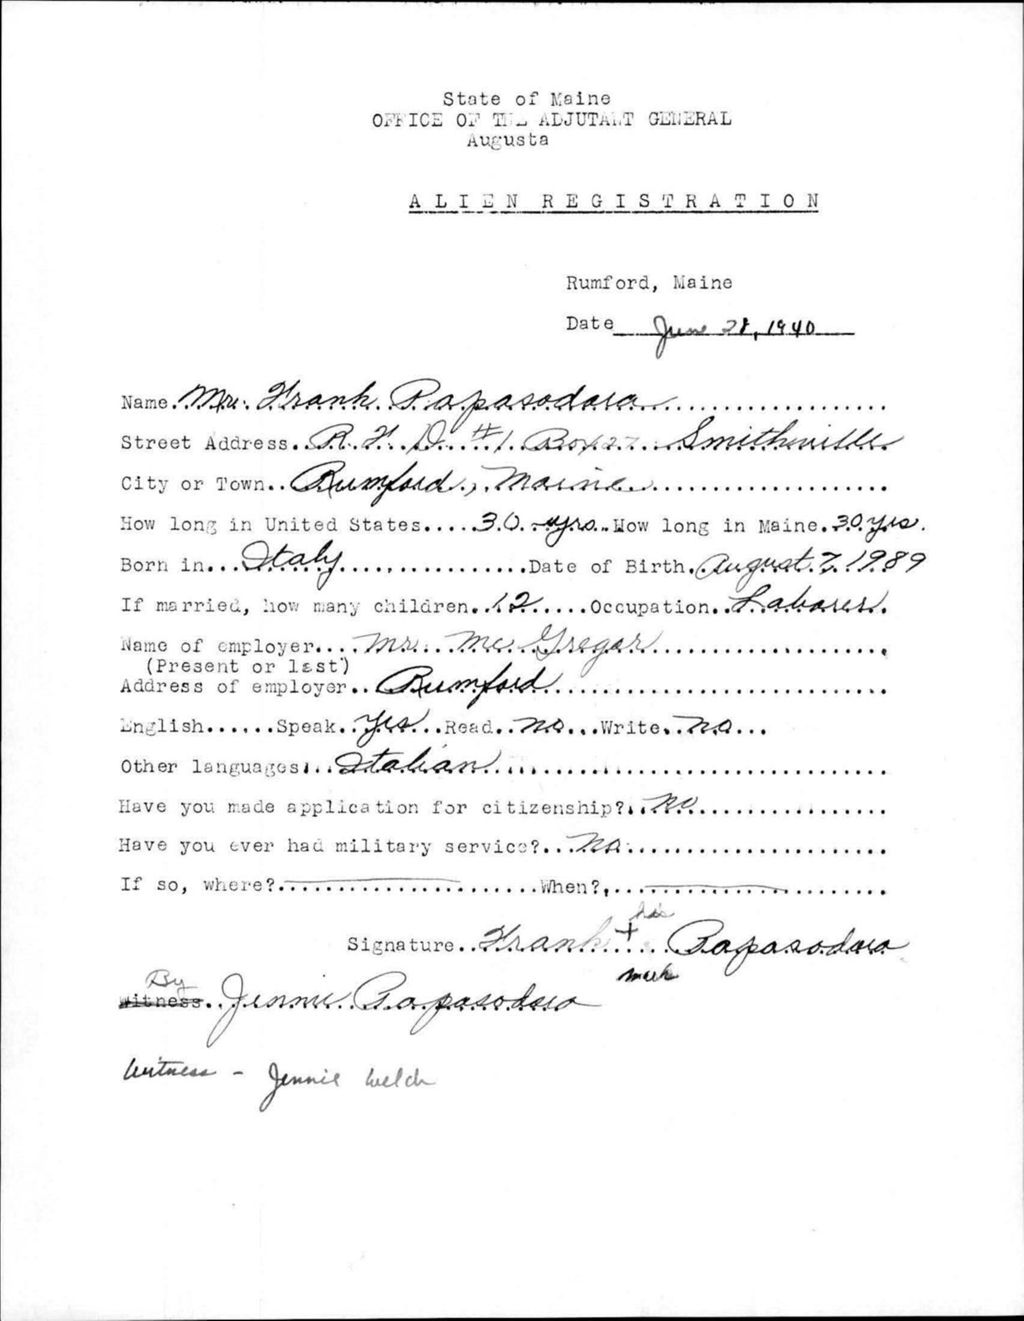 State of Maine
OFFICE OF THE ADJUTANT GENERAL
Augusta
ALIEN REGISTRATION
Rumford, Maine
Date June 28, 1940
Name. Mr. Frank Papasodora
Street Address.. R. F. D. #1 Box 27 Smithville
City or Town.. Rumford, Maine
How long in United States..... 30 yrs. How long in Maine. 30 yrs.
Born in... Italy ... Date of Birth. August 7, 1989
If married, how many children.. 12 ..... Occupation.. Laborer
Name of employer.... Mr. Mc Gregor
(Present or last)
Address of employer.. Rumford
English......Speak.. Yes ...Read.. no ...Write.. no ...
Other languages... Italian
Have you made application for citizenship?.. no
Have you ever had military service?... no
If so, where?. ... When?....
his
Signature.. Frank + Papasodora
mark
By
Witness. Jennie Papasodora
Witness - Jennie Welch